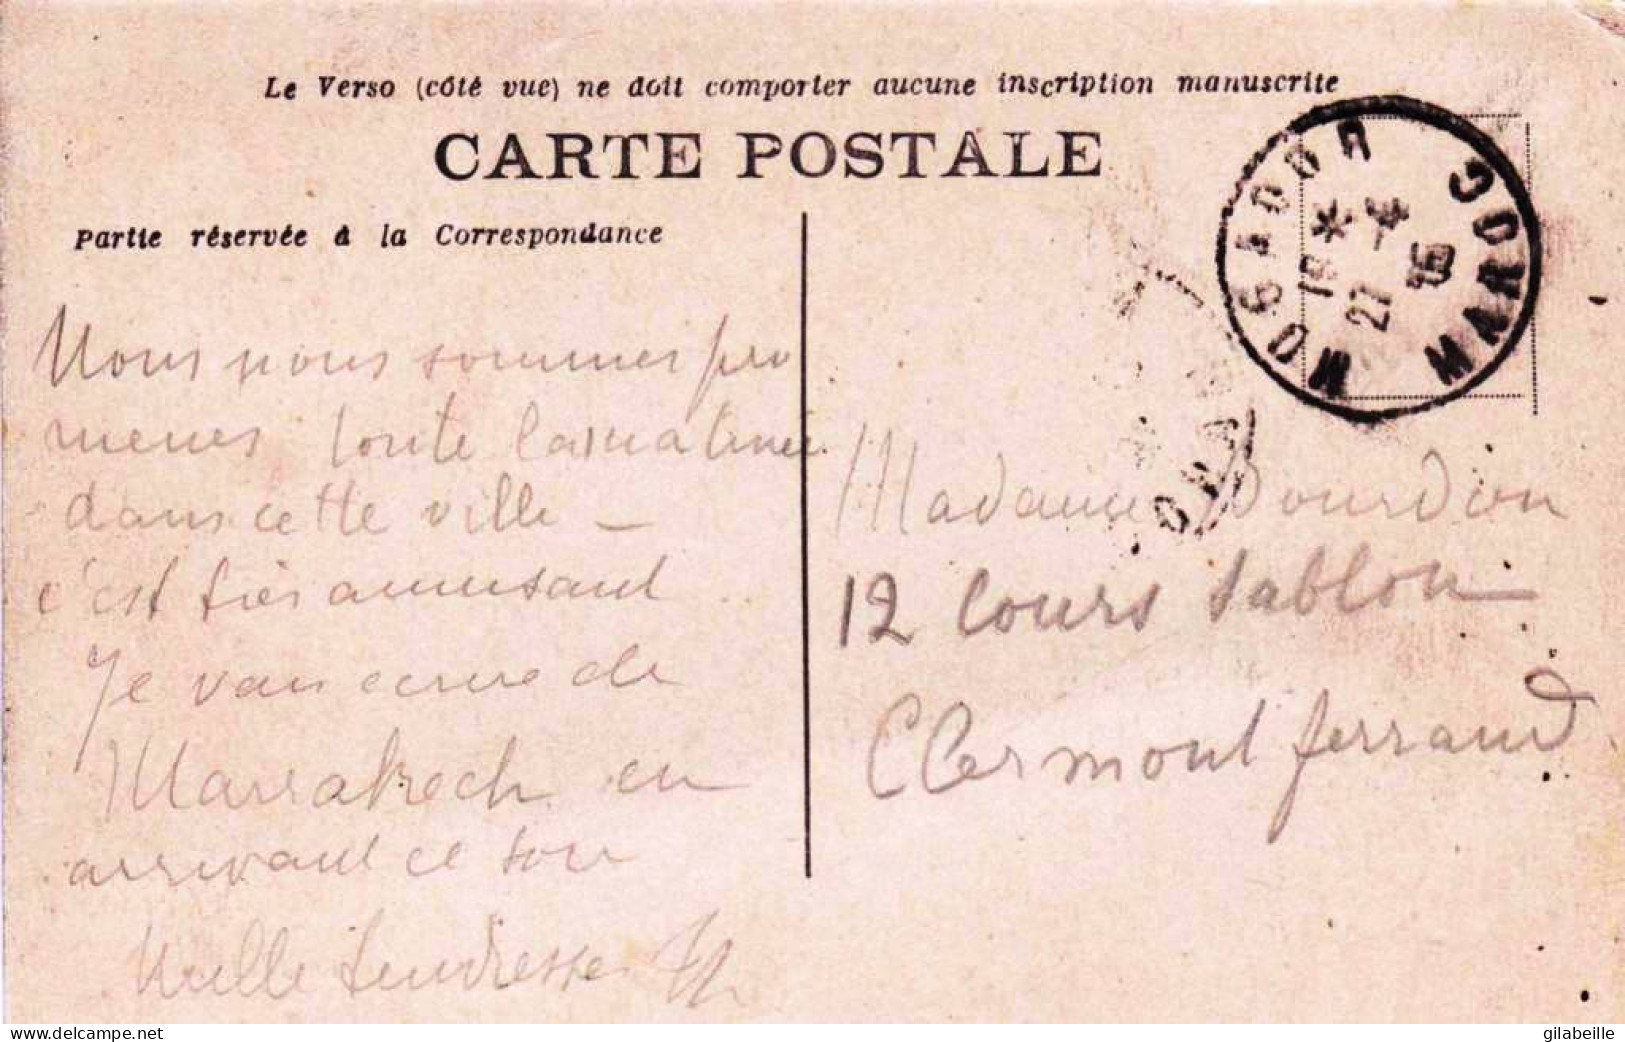 Le Verso (côté vue) ne doit comporter aucune inscription manuscrite
CARTE POSTALE
Partie réservée à la Correspondance
Nous nous sommes pro
menés toute la matinée
dans cette ville —
c'est très amusant
Je vais écrire de
Marrakech en
arrivant ce soir
Mille tendresses
MOGADOR
18 *
27 -4
15
MAROC
ORAN
Madame Bourdon
12 Cours Sablon
Clermont ferrand
gilabeille